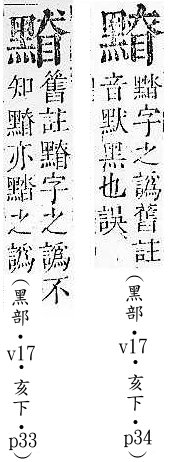 字之譌舊註
音默黑也誤
(黑部・v17・亥下・p34)
舊註字之譌不
知亦之譌
(黑部・v17・亥下・p33)